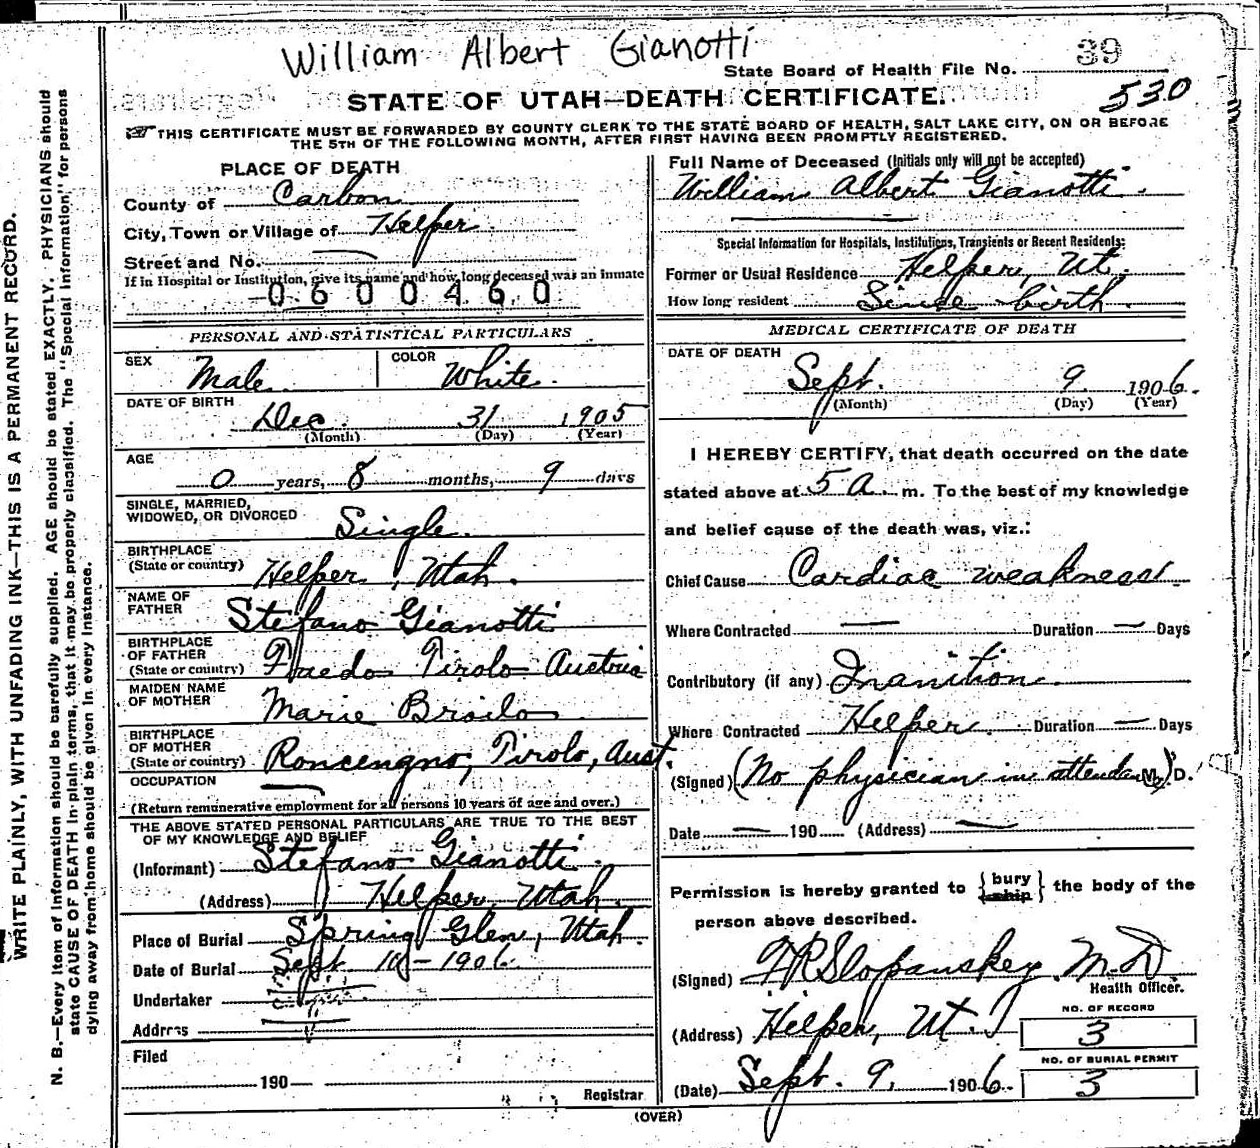 William Albert Gianotti
39
State Board of Health File No.
530
STATE OF UTAH—DEATH CERTIFICATE.
THIS CERTIFICATE MUST BE FORWARDED BY COUNTY CLERK TO THE STATE BOARD OF HEALTH, SALT LAKE CITY, ON OR BEFORE
THE 5TH OF THE FOLLOWING MONTH, AFTER FIRST HAVING BEEN PROMPTLY REGISTERED.
WRITE PLAINLY, WITH UNFADING INK—THIS IS A PERMANENT RECORD.
N. B.—Every item of information should be carefully supplied. AGE should be stated EXACTLY. PHYSICIANS should
state CAUSE OF DEATH in plain terms, that it may be properly classified. The "Special Information" for persons
dying away from home should be given in every instance.
PLACE OF DEATH
County of Carbon
City, Town or Village of Helper
Street and No. —
If in Hospital or Institution, give its name and how long deceased was an inmate
0600460
PERSONAL AND STATISTICAL PARTICULARS
SEX Male COLOR White.
DATE OF BIRTH
Dec 31 1905
(Month) (Day) (Year)
AGE
0 years, 8 months, 9 days
SINGLE, MARRIED,
WIDOWED, OR DIVORCED Single.
BIRTHPLACE
(State or country) Helper, Utah.
NAME OF
FATHER Stefano Gianotti
BIRTHPLACE
OF FATHER
(State or country) Faedo Tirolo Austria
MAIDEN NAME
OF MOTHER Marie Broilo
BIRTHPLACE
OF MOTHER
(State or country) Roncengno, Tirolo, Aust.
OCCUPATION —
(Return remunerative employment for all persons 10 years of age and over.)
THE ABOVE STATED PERSONAL PARTICULARS ARE TRUE TO THE BEST
OF MY KNOWLEDGE AND BELIEF
(Informant) Stefano Gianotti
(Address) Helper, Utah.
Place of Burial Spring Glen, Utah.
Date of Burial Sept 10 - 1906
Undertaker
Address
Filed
190
Registrar
Full Name of Deceased (Initials only will not be accepted)
William Albert Gianotti.
Special Information for Hospitals, Institutions, Transients or Recent Residents:
Former or Usual Residence Helper, Ut.
How long resident Since birth.
MEDICAL CERTIFICATE OF DEATH
DATE OF DEATH
Sept. 9 1906.
(Month) (Day) (Year)
I HEREBY CERTIFY, that death occurred on the date
stated above at 5 a. m. To the best of my knowledge
and belief cause of the death was, viz.:
Chief Cause Cardiac weakness
Where Contracted — Duration — Days
Contributory (if any) Inanition.
Where Contracted Helper. Duration — Days
(Signed) (No physician in attendance) M. D.
Date — 190 (Address) —
Permission is hereby granted to { bury ship } the body of the
person above described.
(Signed) F R Slopanskey M.D
Health Officer.
(Address) Helper, Ut.
NO. OF RECORD
3
NO. OF BURIAL PERMIT
3
(Date) Sept. 9, 1906.
(OVER)